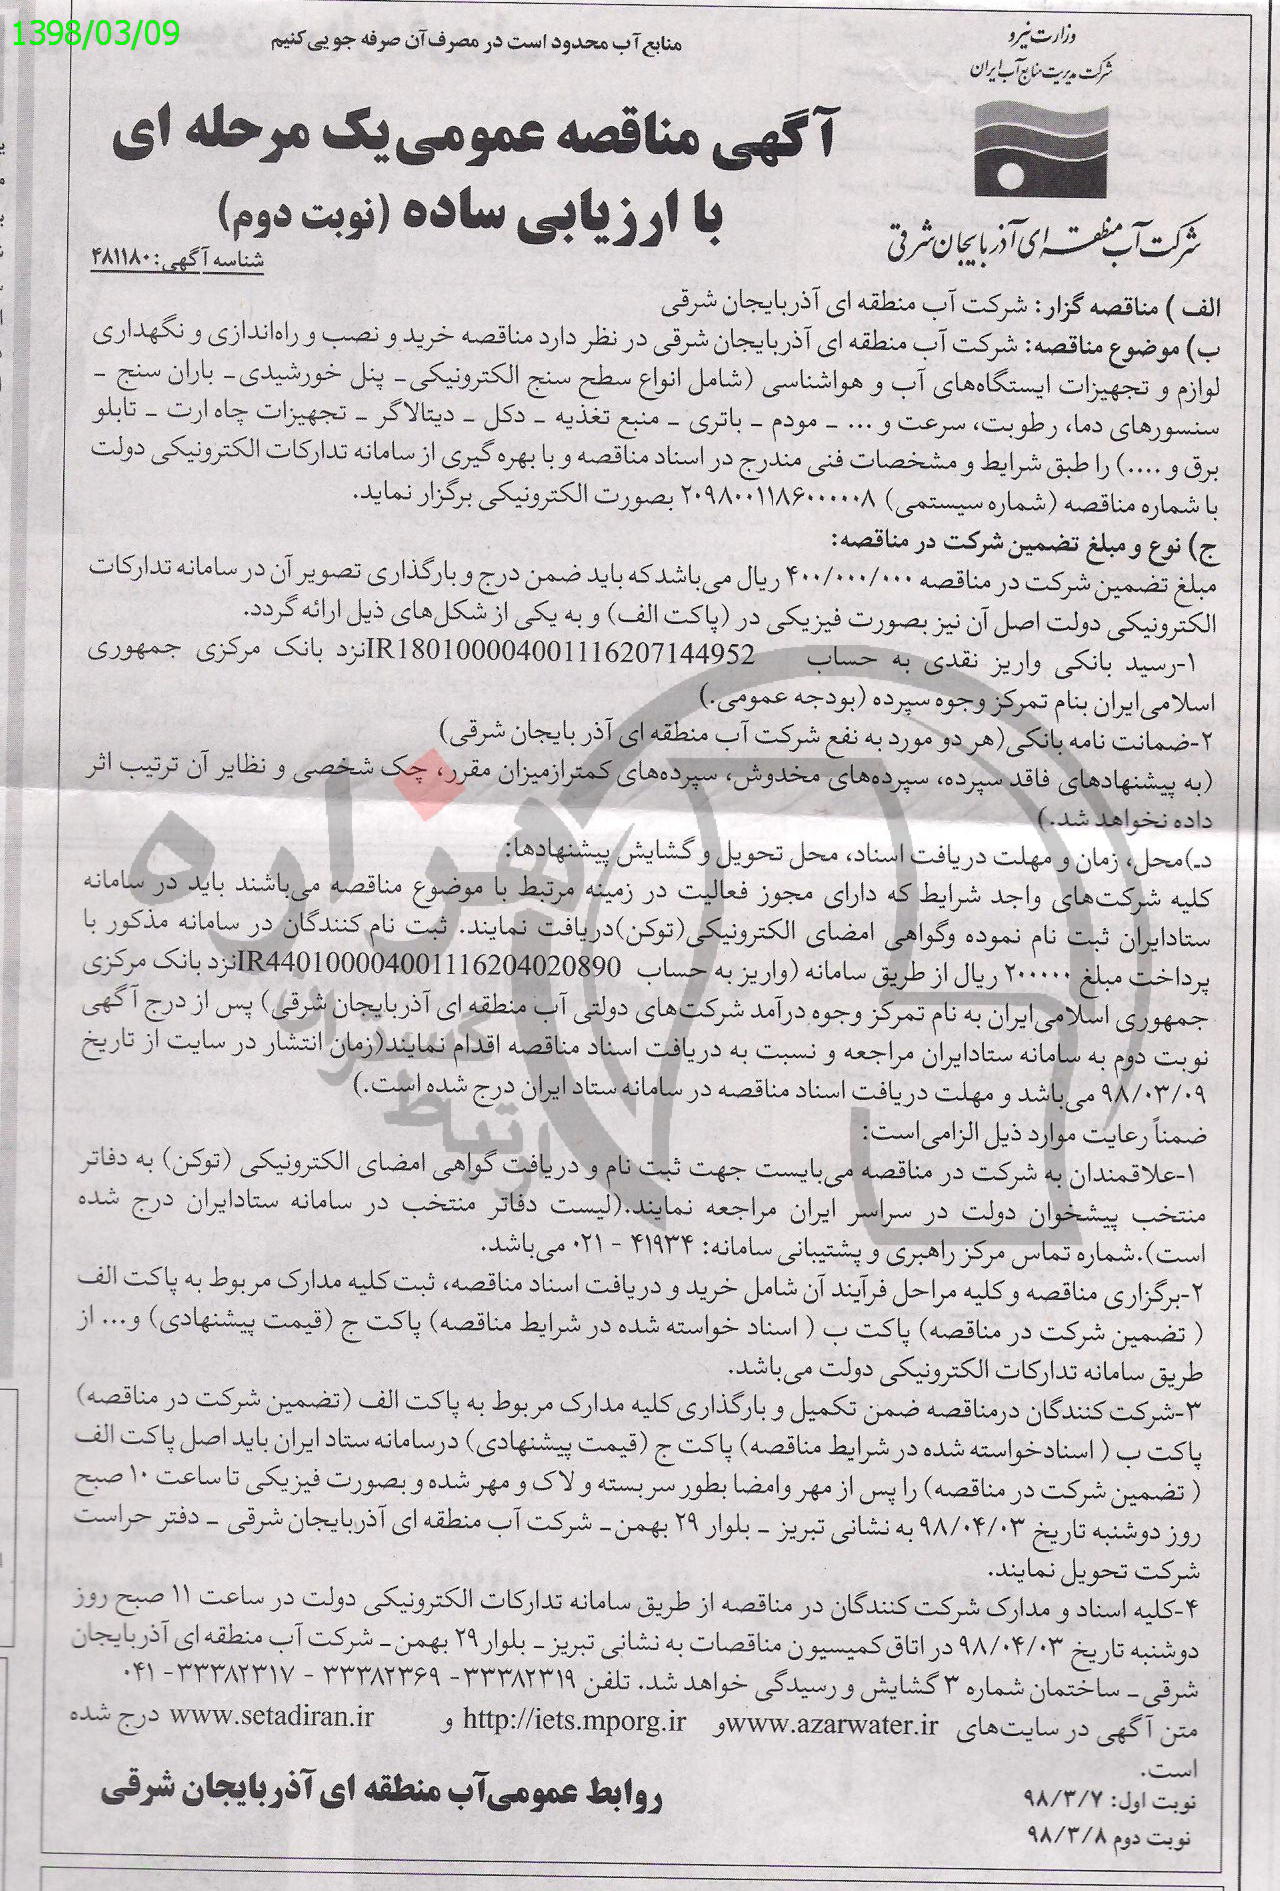 1398/03/09
منابع آب محدود است در مصرف آن صرفه جویی کنیم
وزارت نیرو
شرکت مدیریت منابع آب ایران
شرکت آب منطقه ای آذربایجان شرقی
آگهی مناقصه عمومی یک مرحله ای
با ارزیابی ساده (نوبت دوم)
شناسه آگهی: ۴۸۱۱۸۰
الف ) مناقصه گزار: شرکت آب منطقه ای آذربایجان شرقی
ب) موضوع مناقصه: شرکت آب منطقه ای آذربایجان شرقی در نظر دارد مناقصه خرید و نصب و راه‌اندازی و نگهداری
لوازم و تجهیزات ایستگاه‌های آب و هواشناسی (شامل انواع سطح سنج الکترونیکی- پنل خورشیدی- باران سنج -
سنسورهای دما، رطوبت، سرعت و ... - مودم - باتری - منبع تغذیه - دکل - دیتالاگر - تجهیزات چاه ارت - تابلو
برق و ....) را طبق شرایط و مشخصات فنی مندرج در اسناد مناقصه و با بهره گیری از سامانه تدارکات الکترونیکی دولت
با شماره مناقصه (شماره سیستمی) ۲۰۹۸۰۰۱۱۸۶۰۰۰۰۰۸ بصورت الکترونیکی برگزار نماید.
ج) نوع و مبلغ تضمین شرکت در مناقصه:
مبلغ تضمین شرکت در مناقصه ۴۰۰/۰۰۰/۰۰۰ ریال می‌باشد که باید ضمن درج و بارگذاری تصویر آن در سامانه تدارکات
الکترونیکی دولت اصل آن نیز بصورت فیزیکی در (پاکت الف) و به یکی از شکل‌های ذیل ارائه گردد.
۱-رسید بانکی واریز نقدی به حساب IR180100004001116207144952نزد بانک مرکزی جمهوری
اسلامی‌ایران بنام تمرکز وجوه سپرده (بودجه عمومی.)
۲-ضمانت نامه بانکی(هر دو مورد به نفع شرکت آب منطقه ای آذر بایجان شرقی)
(به پیشنهادهای فاقد سپرده، سپرده‌های مخدوش، سپرده‌های کمترازمیزان مقرر، چک شخصی و نظایر آن ترتیب اثر
داده نخواهد شد.)
د-)محل، زمان و مهلت دریافت اسناد، محل تحویل و گشایش پیشنهادها:
کلیه شرکت‌های واجد شرایط که دارای مجوز فعالیت در زمینه مرتبط با موضوع مناقصه می‌باشند باید در سامانه
ستادایران ثبت نام نموده وگواهی امضای الکترونیکی(توکن)دریافت نمایند. ثبت نام کنندگان در سامانه مذکور با
پرداخت مبلغ ۲۰۰۰۰۰ ریال از طریق سامانه (واریز به حساب IR440100004001116204020890نزد بانک مرکزی
جمهوری اسلامی‌ایران به نام تمرکز وجوه درآمد شرکت‌های دولتی آب منطقه ای آذربایجان شرقی) پس از درج آگهی
نوبت دوم به سامانه ستادایران مراجعه و نسبت به دریافت اسناد مناقصه اقدام نمایند(زمان انتشار در سایت از تاریخ
۹۸/۰۳/۰۹ می‌باشد و مهلت دریافت اسناد مناقصه در سامانه ستاد ایران درج شده است.)
ضمناً رعایت موارد ذیل الزامی‌است:
۱-علاقمندان به شرکت در مناقصه می‌بایست جهت ثبت نام و دریافت گواهی امضای الکترونیکی (توکن) به دفاتر
منتخب پیشخوان دولت در سراسر ایران مراجعه نمایند.(لیست دفاتر منتخب در سامانه ستادایران درج شده
است).شماره تماس مرکز راهبری و پشتیبانی سامانه: ۴۱۹۳۴ - ۰۲۱ می‌باشد.
۲-برگزاری مناقصه و کلیه مراحل فرآیند آن شامل خرید و دریافت اسناد مناقصه، ثبت کلیه مدارک مربوط به پاکت الف
( تضمین شرکت در مناقصه) پاکت ب ( اسناد خواسته شده در شرایط مناقصه) پاکت ج (قیمت پیشنهادی) و... از
طریق سامانه تدارکات الکترونیکی دولت می‌باشد.
۳-شرکت کنندگان درمناقصه ضمن تکمیل و بارگذاری کلیه مدارک مربوط به پاکت الف (تضمین شرکت در مناقصه)
پاکت ب ( اسنادخواسته شده در شرایط مناقصه) پاکت ج (قیمت پیشنهادی) درسامانه ستاد ایران باید اصل پاکت الف
( تضمین شرکت در مناقصه) را پس از مهر وامضا بطور سربسته و لاک و مهر شده و بصورت فیزیکی تا ساعت ۱۰ صبح
روز دوشنبه تاریخ ۹۸/۰۴/۰۳ به نشانی تبریز - بلوار ۲۹ بهمن- شرکت آب منطقه ای آذربایجان شرقی - دفتر حراست
شرکت تحویل نمایند.
۴-کلیه اسناد و مدارک شرکت کنندگان در مناقصه از طریق سامانه تدارکات الکترونیکی دولت در ساعت ۱۱ صبح روز
دوشنبه تاریخ ۹۸/۰۴/۰۳ در اتاق کمیسیون مناقصات به نشانی تبریز - بلوار ۲۹ بهمن- شرکت آب منطقه ای آذربایجان
شرقی- ساختمان شماره ۳ گشایش و رسیدگی خواهد شد. تلفن ۳۳۳۸۲۳۱۹- ۳۳۳۸۲۳۶۹ - ۳۳۳۸۲۳۱۷- ۰۴۱
متن آگهی در سایت‌های www.azarwater.irو http://iets.mporg.ir و www.setadiran.ir درج شده
است.
نوبت اول: ۹۸/۳/۷
نوبت دوم ۹۸/۳/۸
روابط عمومی‌آب منطقه ای آذربایجان شرقی